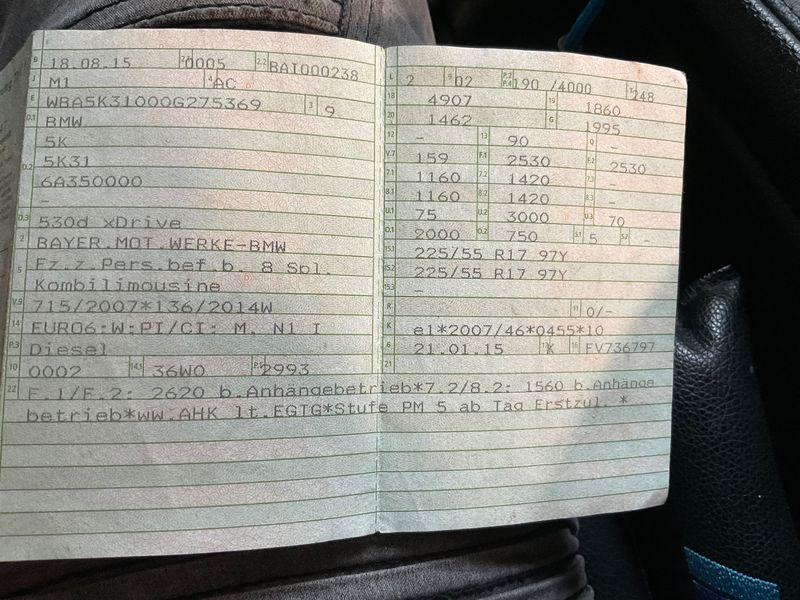 B 18.08.15 2.1 0005 2.2 BAI000238
J M1 4 AC
E WBA5K31000G275369 3 9
D.1 BMW
5K
D.2 5K31
6A350000
-
D.3 530d xDrive
2 BAYER.MOT.WERKE-BMW
5 Fz.z.Pers.bef.b. 8 Spl.
Kombilimousine
V.9 715/2007*136/2014W
14 EURO6;W;PI/CI; M, N1 I
P.3 Diesel
10 0002 14.1 36W0 P.1 2993
L 2 9 02 P.2 P.4 190 /4000 T 248
18 4907 19 1860
20 1462 G 1995
12 - 13 90 Q -
V.7 159 F.1 2530 F.2 2530
7.1 1160 7.2 1420 7.3 -
8.1 1160 8.2 1420 8.3 -
U.1 75 U.2 3000 U.3 70
O.1 2000 O.2 750 S.1 5 S.2 -
15.1 225/55 R17 97Y
15.2 225/55 R17 97Y
15.3 -
R 11 0/-
K e1*2007/46*0455*10
6 21.01.15 17 K 16 FV736797
21
22 F.1/F.2: 2620 b.Anhängebetrieb*7.2/8.2: 1560 b.Anhänge
betrieb*ww.AHK lt.EGTG*Stufe PM 5 ab Tag Erstzul. *